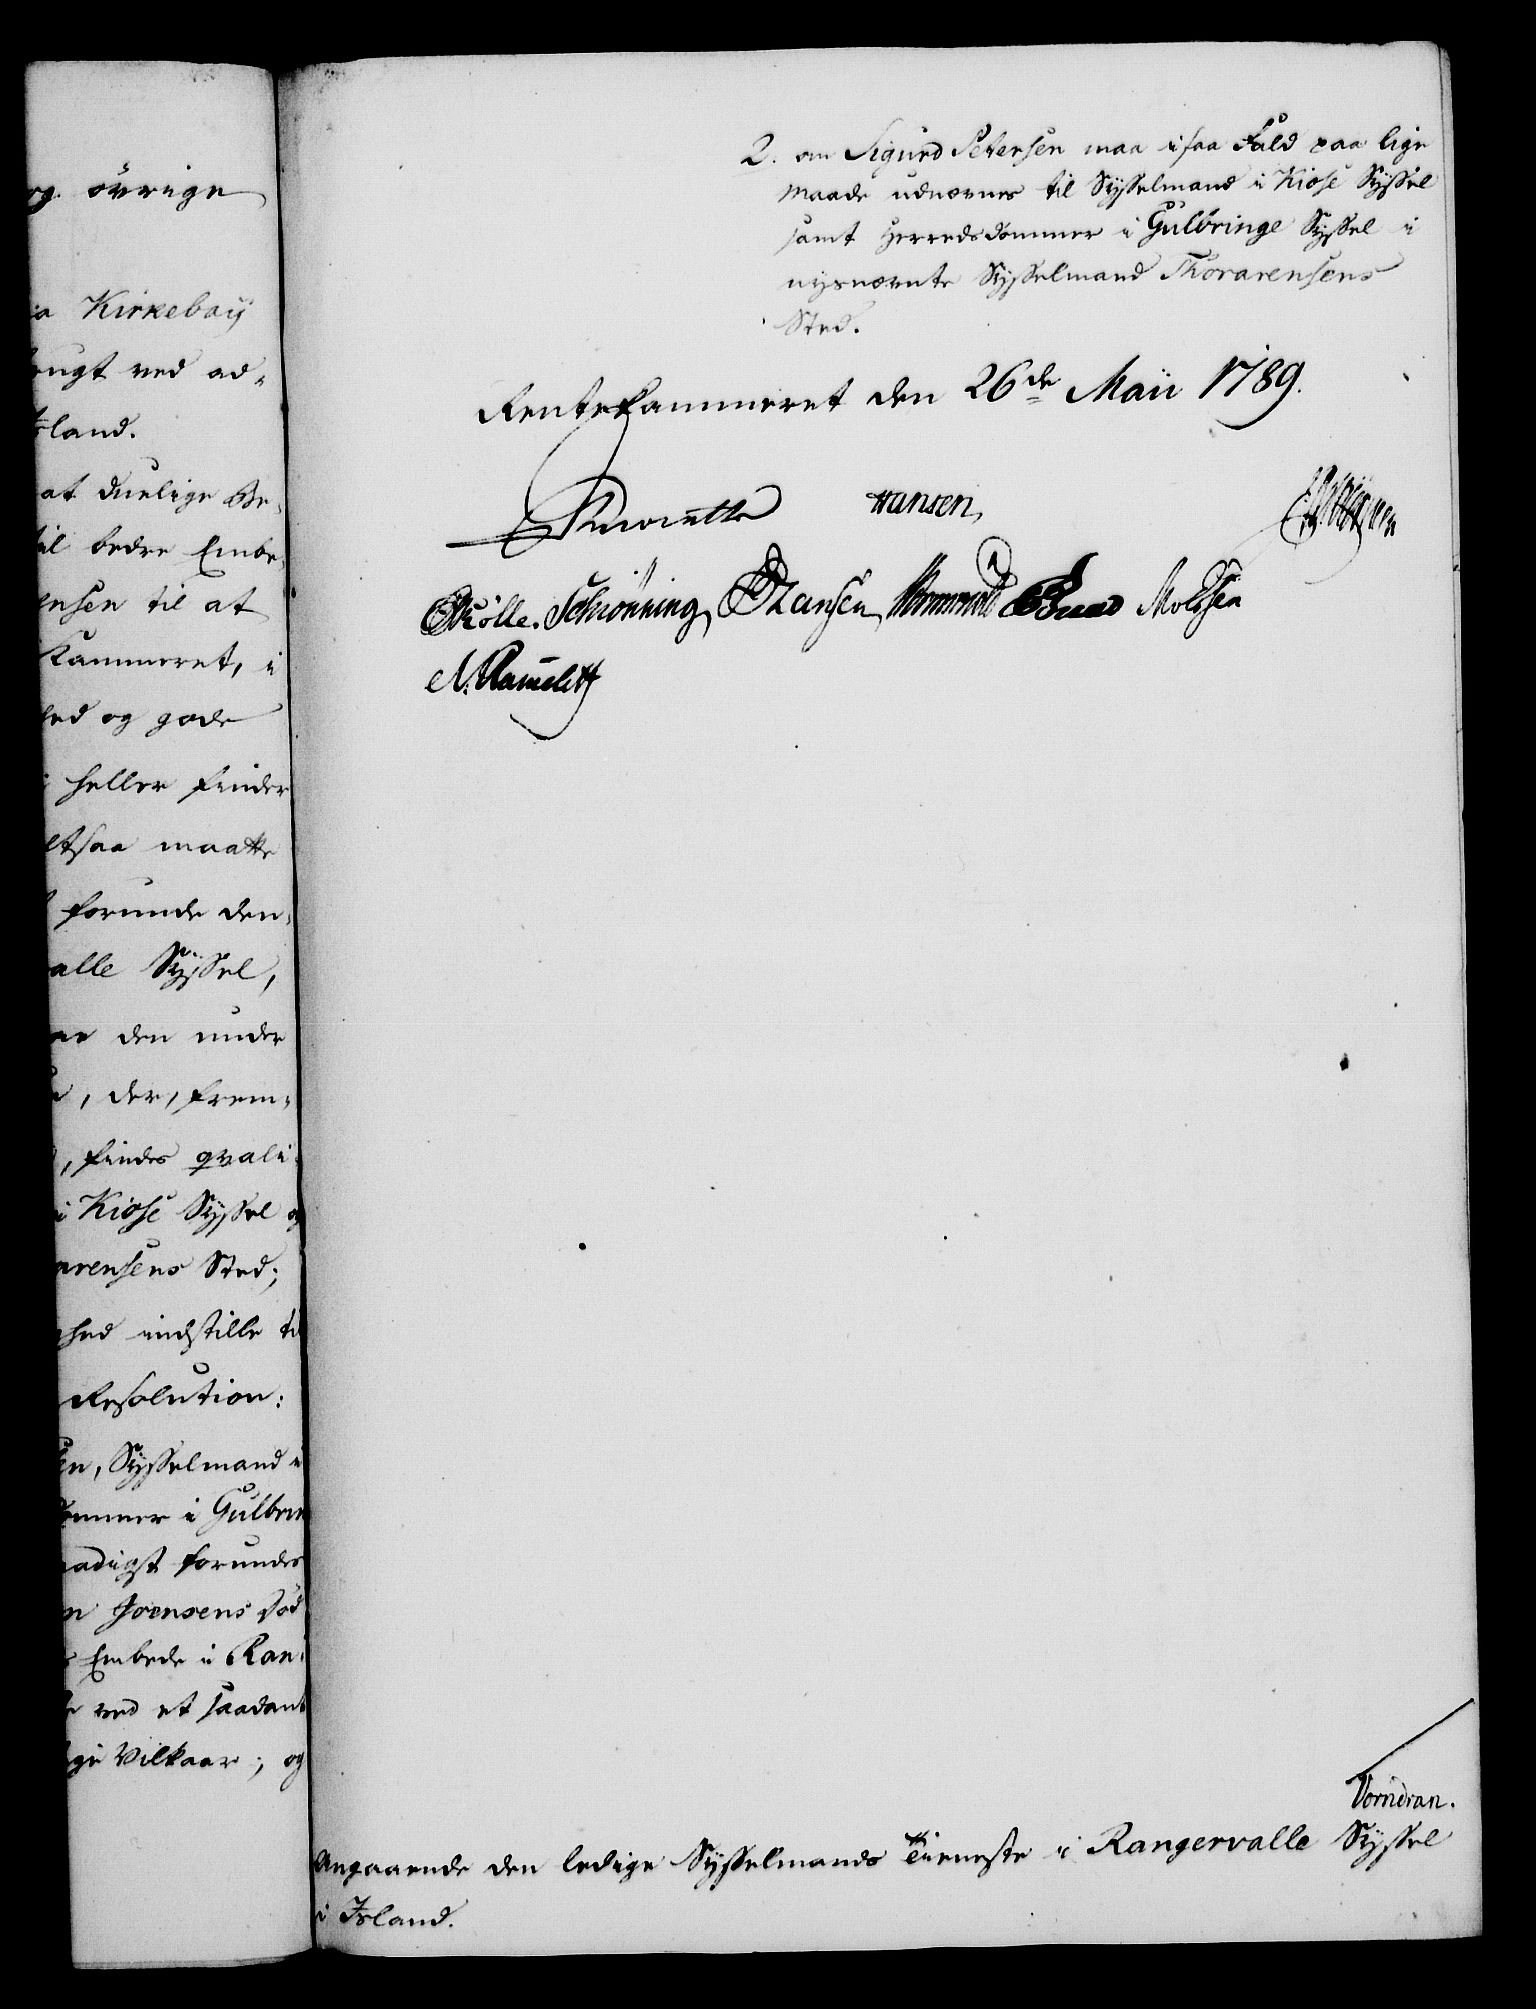 og øvrige
Kirkebay
brugt ved ad-
Island.
at duelige Be-
til bedre Embe-
ensen til at
Kammeret, i
hed og gode
heller finder
altsaa maatte
forunde den-
alle Syssel,
den under
, der, frem-
, findes qvali-
i Kiose Syssel og
arensens Sted;
hed indstille til
Resolution:
sen, Sysselmand i
dommer i Gulbrin
naadigst forundes
Joensens Død
Embede i Ran-
ved et saadant
Vilkaar; og
2. om Sigurd Petersen maa i saa Fald paa lige
Maade udnævnes til Sysselmand i Kiose Syssel
samt Herredsdommer i Gulbringe Syssel i
nysnævnte Sysselmand Thorarensens
Sted.
Rentekammeret den 26de Maii 1789.
Hansen,
Schiönning, Hansen,
N. Ramclett
Vorndran.
Angaaende den ledige Sysselmands Tieneste i Rangervalle Syssel
i Island.